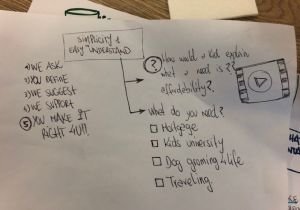 SIMPLICITY &
EASY UNDERSTAND
1) WE ASK
2) YOU DEFINE
3) WE SUGGEST
4) WE SUPPORT
5) YOU MAKE IT
RIGHT 4U!!
? How would a kid explain
what u need is ??
affordability?
What do you need?
Mortgage
Kids university
Dog groming 4 life
Traveling